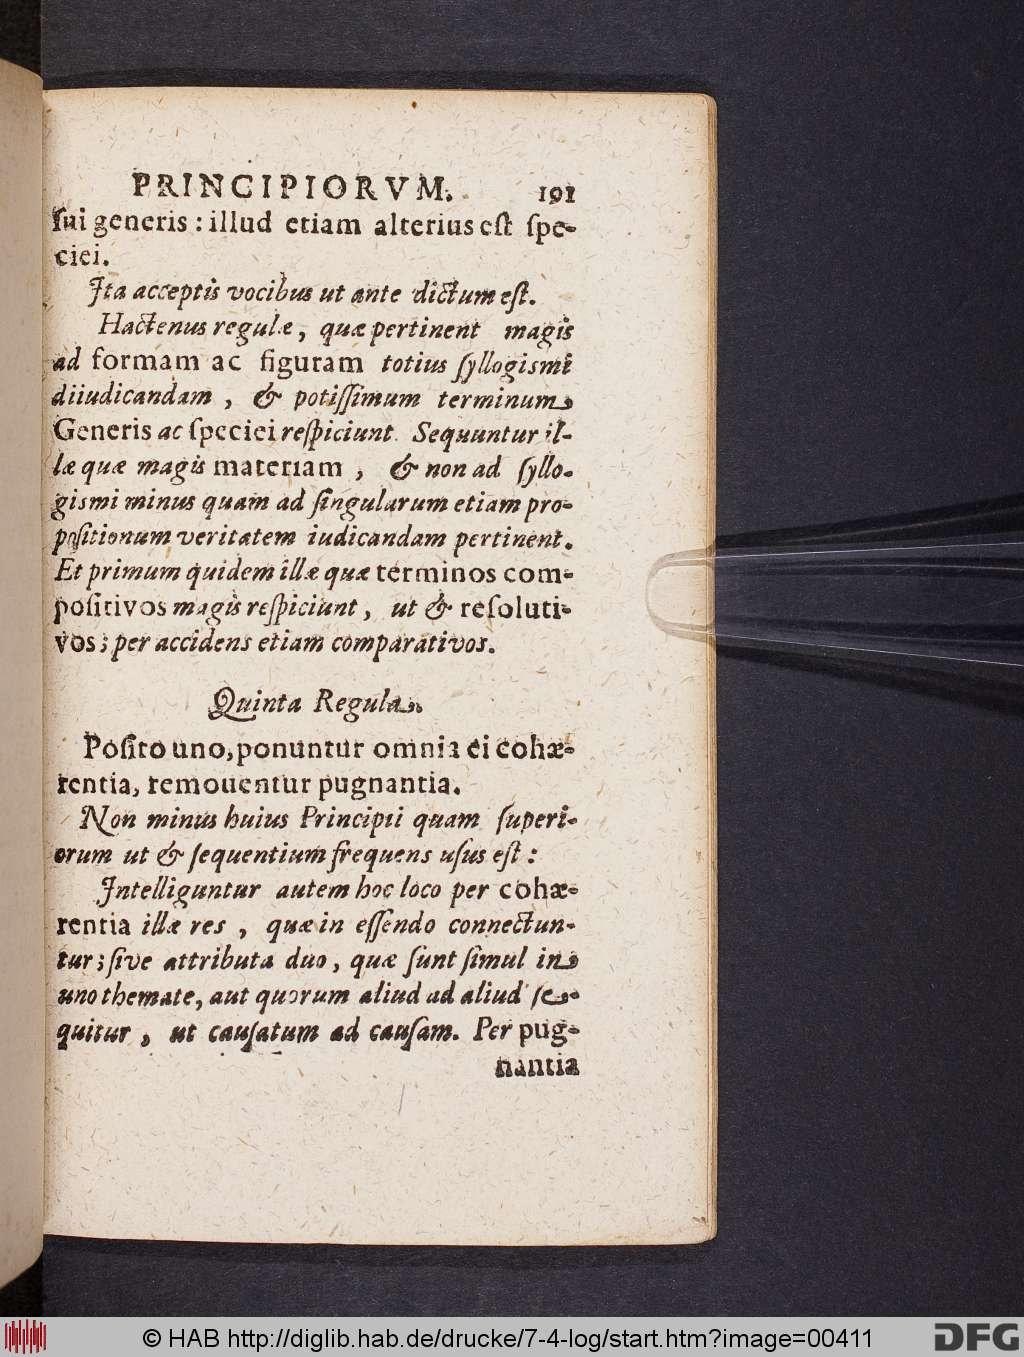 PRINCIPIORVM. 191
ſui generis : illud etiam alterius eſt ſpe-
ciei.
Ita acceptis vocibus ut ante dictum eſt.
Hactenus regulæ, quæ pertinent magis
ad formam ac figuram totius ſyllogismi
diiudicandam, & potiſſimum terminum
Generis ac ſpeciei reſpiciunt. Sequuntur il-
læ quæ magis materiam, & non ad ſyllo-
gismi minus quam ad ſingularum etiam pro-
poſitionum veritatem iudicandam pertinent.
Et primum quidem illæ quæ terminos com-
poſitivos magis reſpiciunt, ut & reſoluti-
vos; per accidens etiam comparativos.
Quinta Regula.
Poſito uno, ponuntur omnia ei cohæ-
rentia, remouentur pugnantia.
Non minus huius Principii quam ſuperi-
orum ut & ſequentium frequens uſus eſt :
Intelliguntur autem hoc loco per cohæ-
rentia illæ res, quæ in eſſendo connectun-
tur; ſive attributa duo, quæ ſunt ſimul in
uno themate, aut quorum aliud ad aliud ſe-
quitur, ut cauſatum ad cauſam. Per pug-
nantia
© HAB http://diglib.hab.de/drucke/7-4-log/start.htm?image=00411
DFG